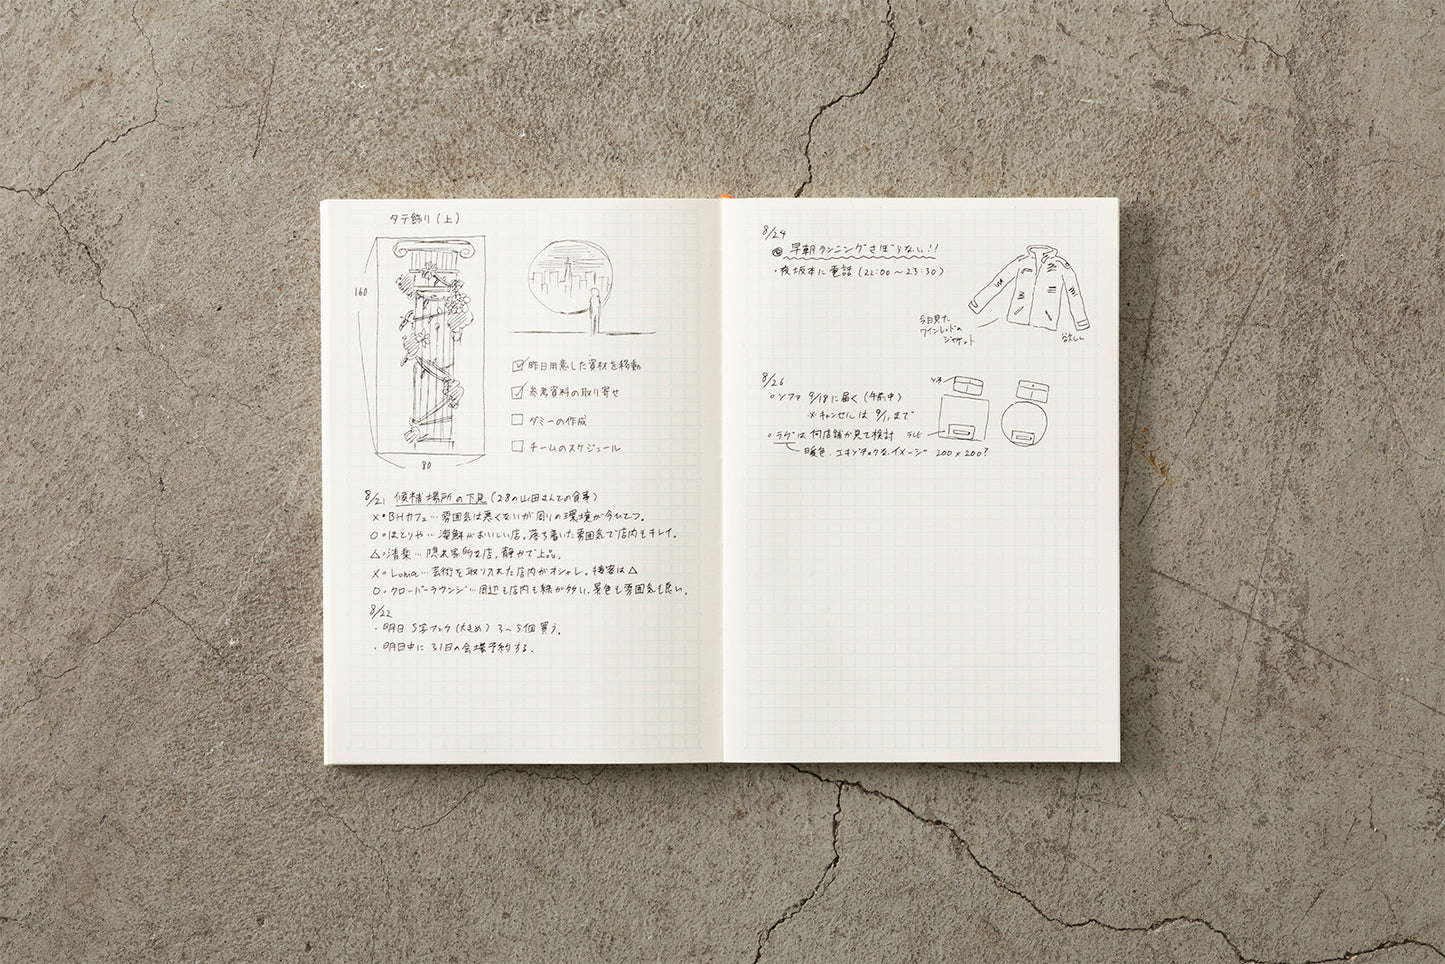 タテ飾り(上)
160
80
☑ 昨日用意した資材を移動
☑ 参考資料の取り寄せ
☐ ダミーの作成
☐ チームのスケジュール
8/21 候補場所の下見(28の山田さんとの食事)
×・BHカフェ…雰囲気は悪くないが周りの環境が今ひとつ。
○・ほとりや…海鮮がおいしい店。落ち着いた雰囲気で店内もキレイ。
△・清楽…隠れ家的な店。静かで上品。
×・Loma…芸術を取り入れた店内がオシャレ。接客は△
○・クローバーラウンジ…周辺も店内も緑が多い、景色も雰囲気も良い。
8/22
・明日 S字フック(大きめ)3〜5個買う。
・明日中に31日の会場予約する。
8/24
早朝ランニングさぼらない!!
・夜坂本に電話(22:00〜23:30)
今日見た
ワインレッドの
ジャケット
欲しい
8/26
○ソファ 9/18に届く(午前中)
※キャンセルは 9/11まで
○ラグは何店舗か見て検討
暖色、エキゾチックなイメージ 200×200?
ソファ
テレビ